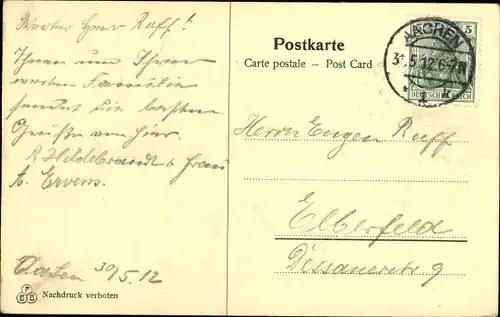 Werter Herr Ruff!
Ihnen und Ihrer
werten Familie
sendet die besten
Grüße von hier
R. Hildebrandt & Frau
A. Ervens.
Aachen 30/5.12
Nachdruck verboten
Postkarte
Carte postale – Post Card
AACHEN
31.5.12.6-7
5
DEUTSCHES REICH
Herrn Eugen Ruff
Elberfeld
Dessauerstr 9